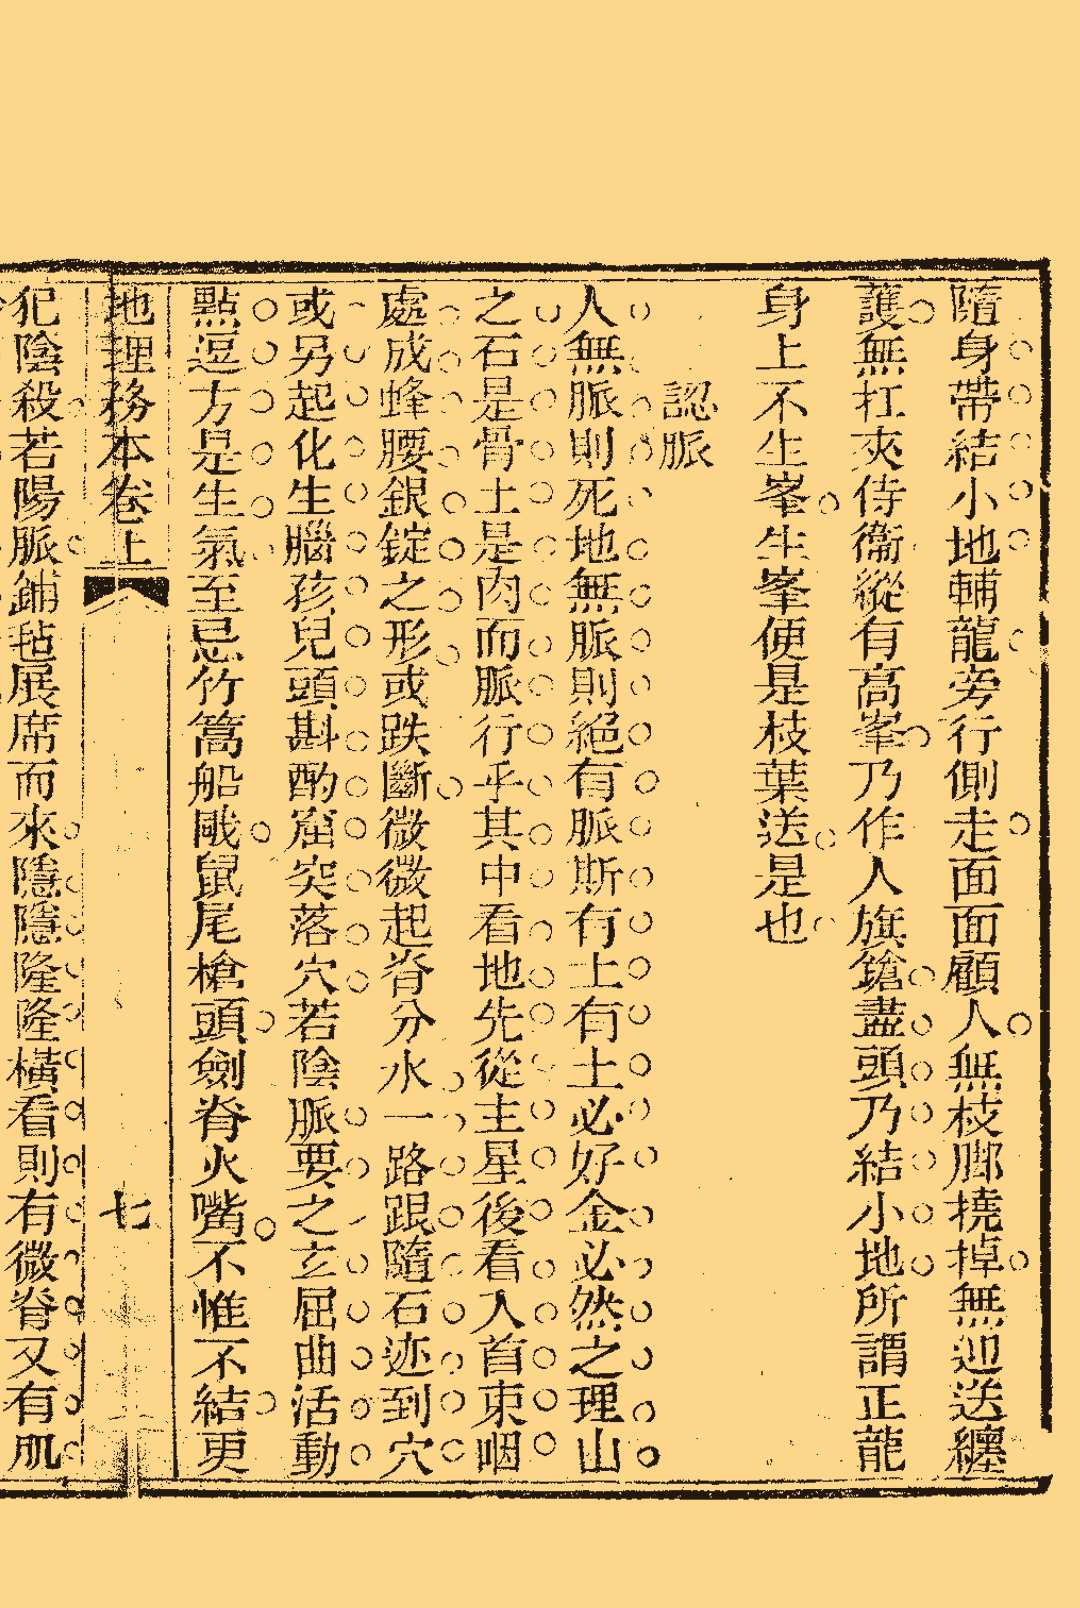 隨身帶結小地輔龍旁行側走面面顧人無枝脚撓掉無迎送纏
護無扛夾侍衞縱有高峯乃作人旗鎗盡頭乃結小地所謂正龍
身上不生峯生峯便是枝葉送是也
認脈
人無脈則死地無脈則絕有脈斯有土有土必好金必然之理山
之石是骨土是肉而脈行乎其中看地先從主星後看入首束咽
處成蜂腰銀錠之形或跌斷微微起脊分水一路跟隨石迹到穴
或另起化生腦孩兒頭斟酌窟突落穴若陰脈要之玄屈曲活動
點逗方是生氣至忌竹篙船戙鼠尾槍頭劍脊火嘴不惟不結更
地理務本卷上
七
犯陰殺若陽脈鋪毡展席而來隱隱隆隆橫看則有微脊又有肌